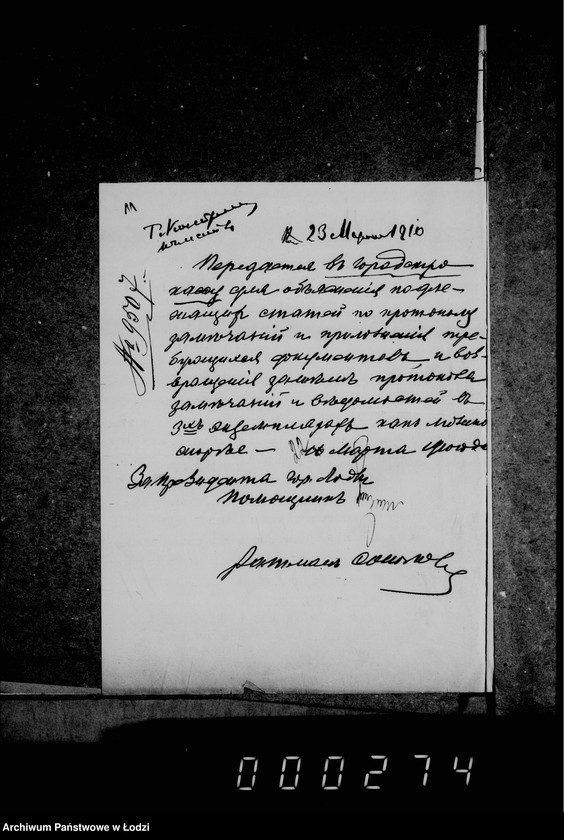 23 Марта 1910
№ 6307
Передается въ городскую
кассу для объясненія подле-
жащихъ статей по протоколу
замѣчаній и приложенія тре-
бующихся документовъ и воз-
вращенія затѣмъ протокола
замѣчаній и вѣдомостей въ
3хъ экземплярахъ какъ можно
скорѣе — Марта
За Президента гор. Лодзи
Помощникъ
000274
Archiwum Państwowe w Łodzi